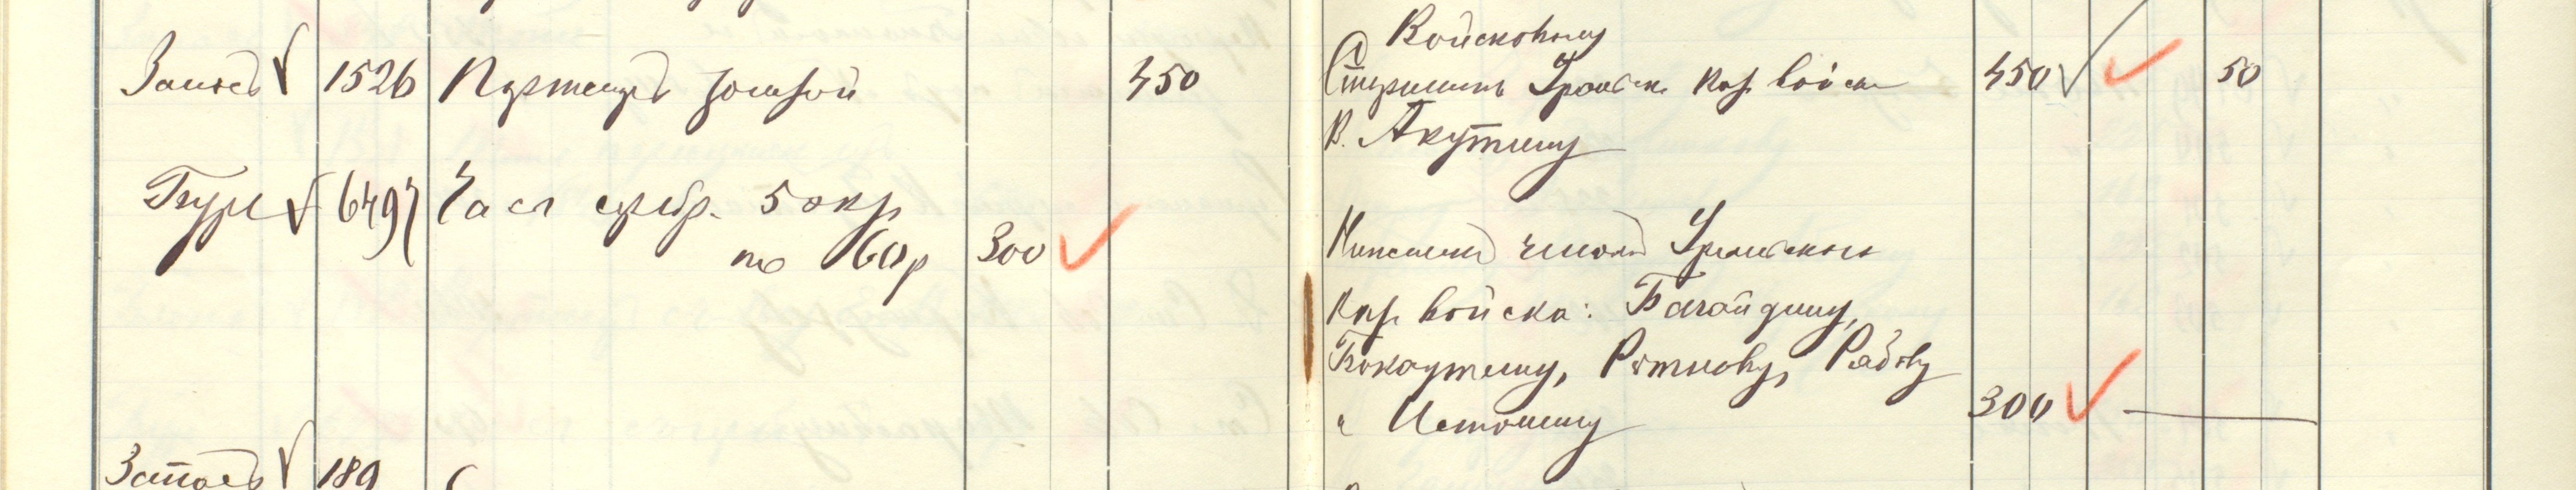 Запасъ 1526 Портсигаръ золотой 450
Войсковому
Старшинѣ Уральск. каз. войска 450 50
В. Акутину
Гури 6497 Часы серебр. 5 экз.
по 60 р 300
Нижнимъ чинамъ Уральскаго
каз. войска: Багайдину,
Бокаутину, Рѣтнову, Рябову
и Истомину 300
Запасъ 189